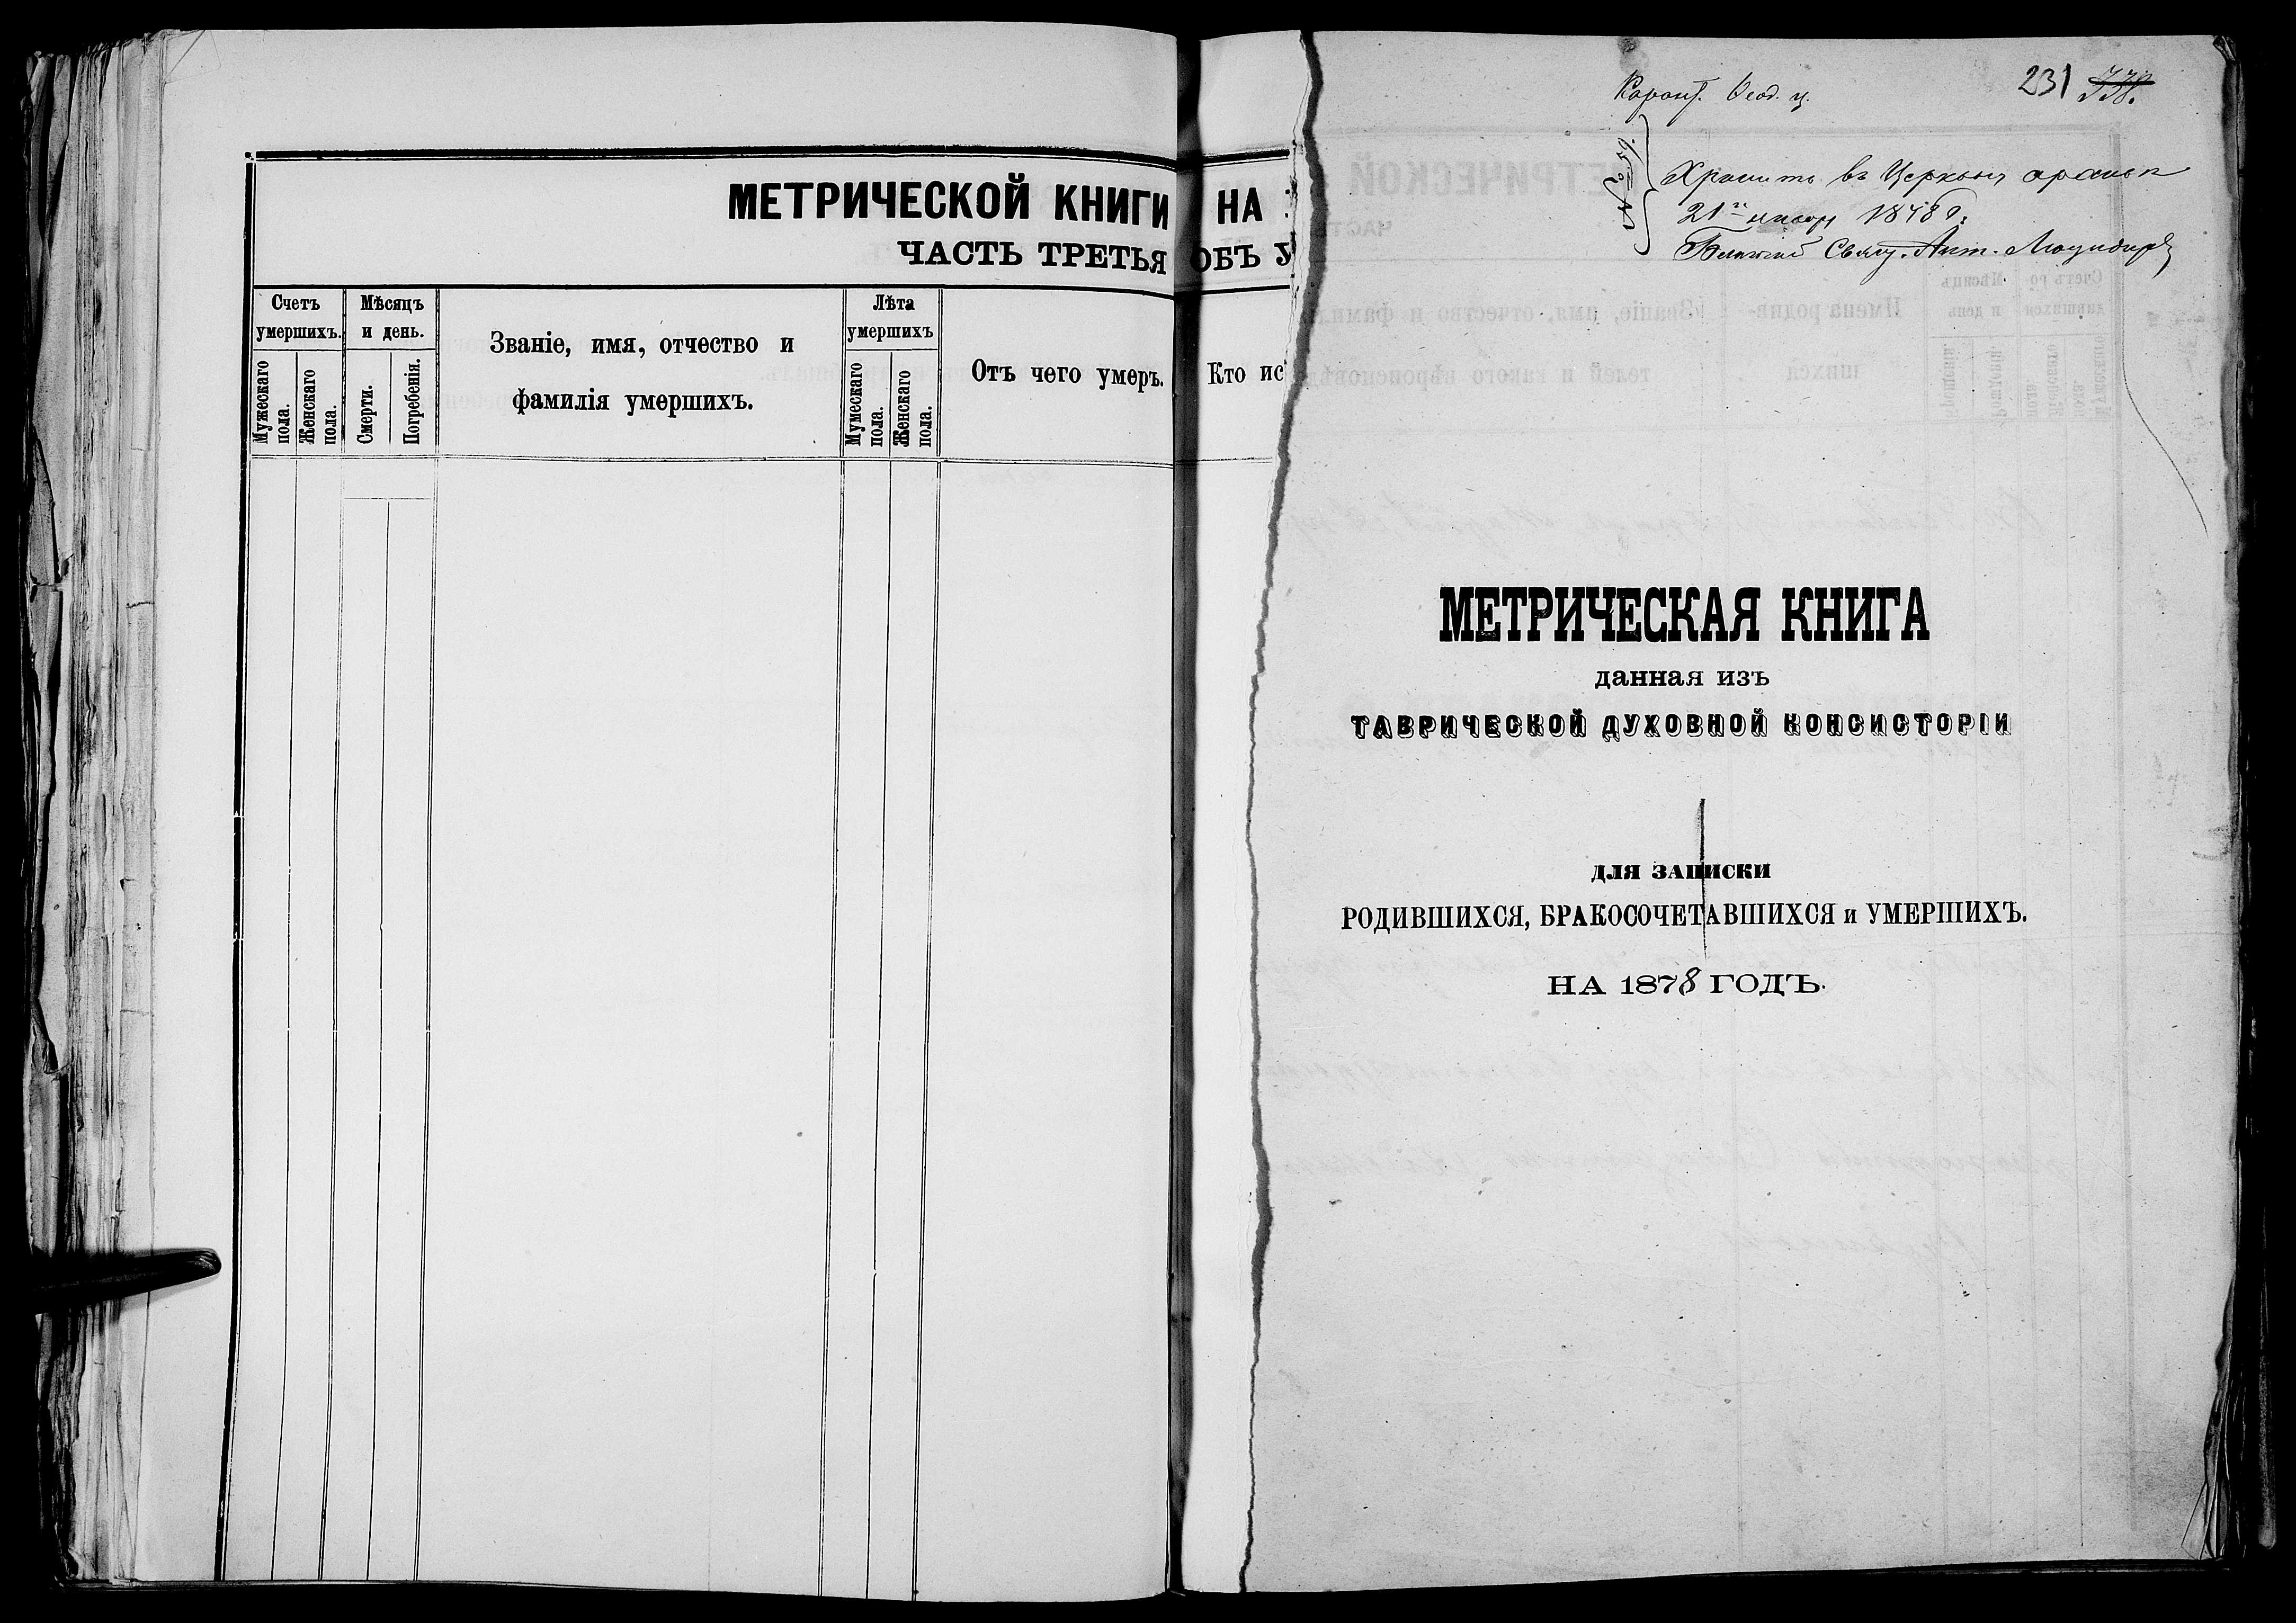 МЕТРИЧЕСКОЙ КНИГИ НА
ЧАСТЬ ТРЕТЬЯ ОБЪ У
Счетъ умершихъ.
Мужескаго пола.
Женскаго пола.
Мѣсяцъ и день.
Смерти.
Погребенія.
Званіе, имя, отчество и
фамилія умершихъ.
Лѣта умершихъ
Мумескаго пола.
Женскаго пола.
Отъ чего умеръ.
Кто ис
Карант. Ѳеод. ц.
231 338.
№ 59.
Хранить въ Церковн
21 1878
Свящ. Ант.
МЕТРИЧЕСКАЯ КНИГА
данная изъ
ТАВРИЧЕСКОЙ ДУХОВНОЙ КОНСИСТОРІИ
ДЛЯ ЗАПИСКИ
РОДИВШИХСЯ, БРАКОСОЧЕТАВШИХСЯ и УМЕРШИХЪ.
НА 1878 ГОДЪ.